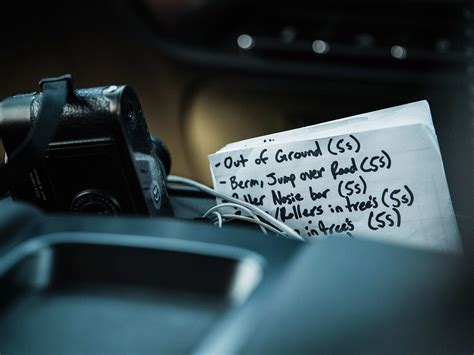 - Out of Ground (5s)
- Berm, Jump over Road (5s)
ller Nosie bar (5s)
/Rollers in trees (5s)
in trees (5s)